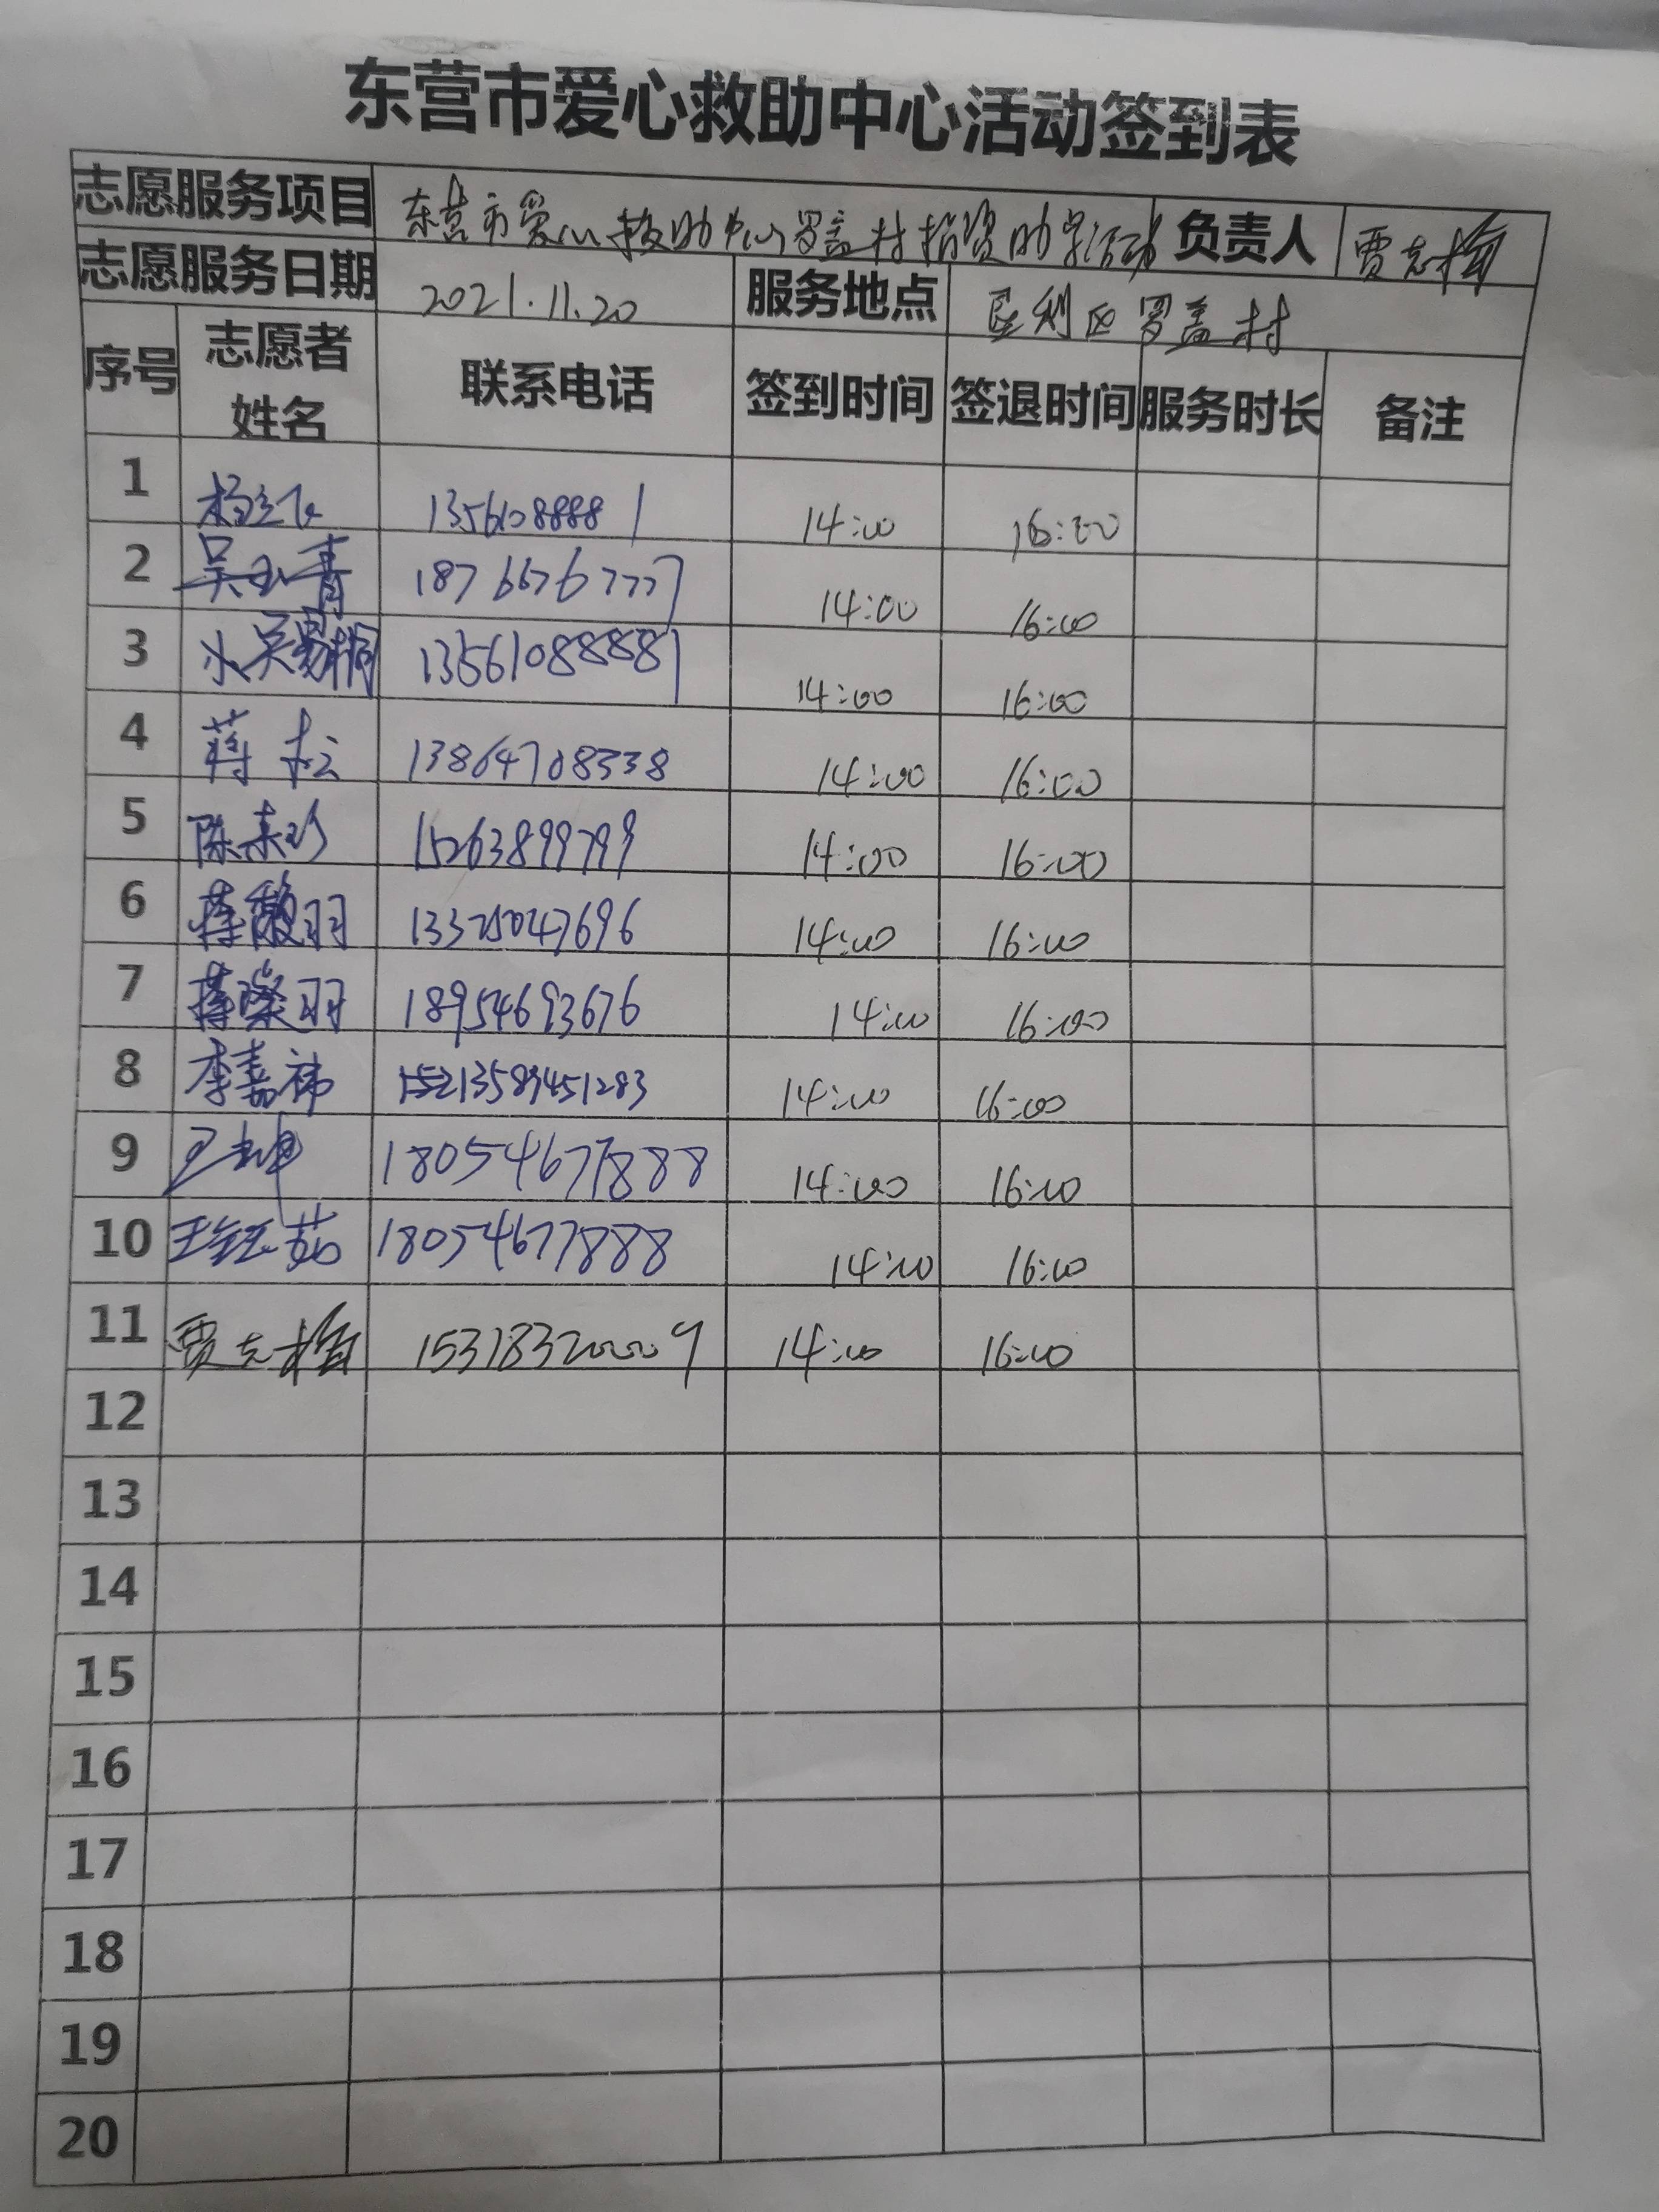 东营市爱心救助中心活动签到表
志愿服务项目 东营市爱心救助中心罗盖村捐资助学活动 负责人 贾克梅
志愿服务日期 2021.11.20 服务地点 垦利区罗盖村
序号 志愿者姓名 联系电话 签到时间 签退时间 服务时长 备注
1 13561088881 14:00 16:00
2 吴玉青 18766767777 14:00 16:00
3 小吴易桐 13561088881 14:00 16:00
4 蒋松 13864708338 14:00 16:00
5 陈来珍 15263899799 14:00 16:00
6 蒋馥羽 13325047696 14:00 16:00
7 蒋璨羽 18954693676 14:00 16:00
8 李嘉祎 13589451283 14:00 16:00
9 18054677888 14:00 16:00
10 王钰茹 18054677888 14:00 16:00
11 贾克梅 15318320009 14:00 16:00
12
13
14
15
16
17
18
19
20